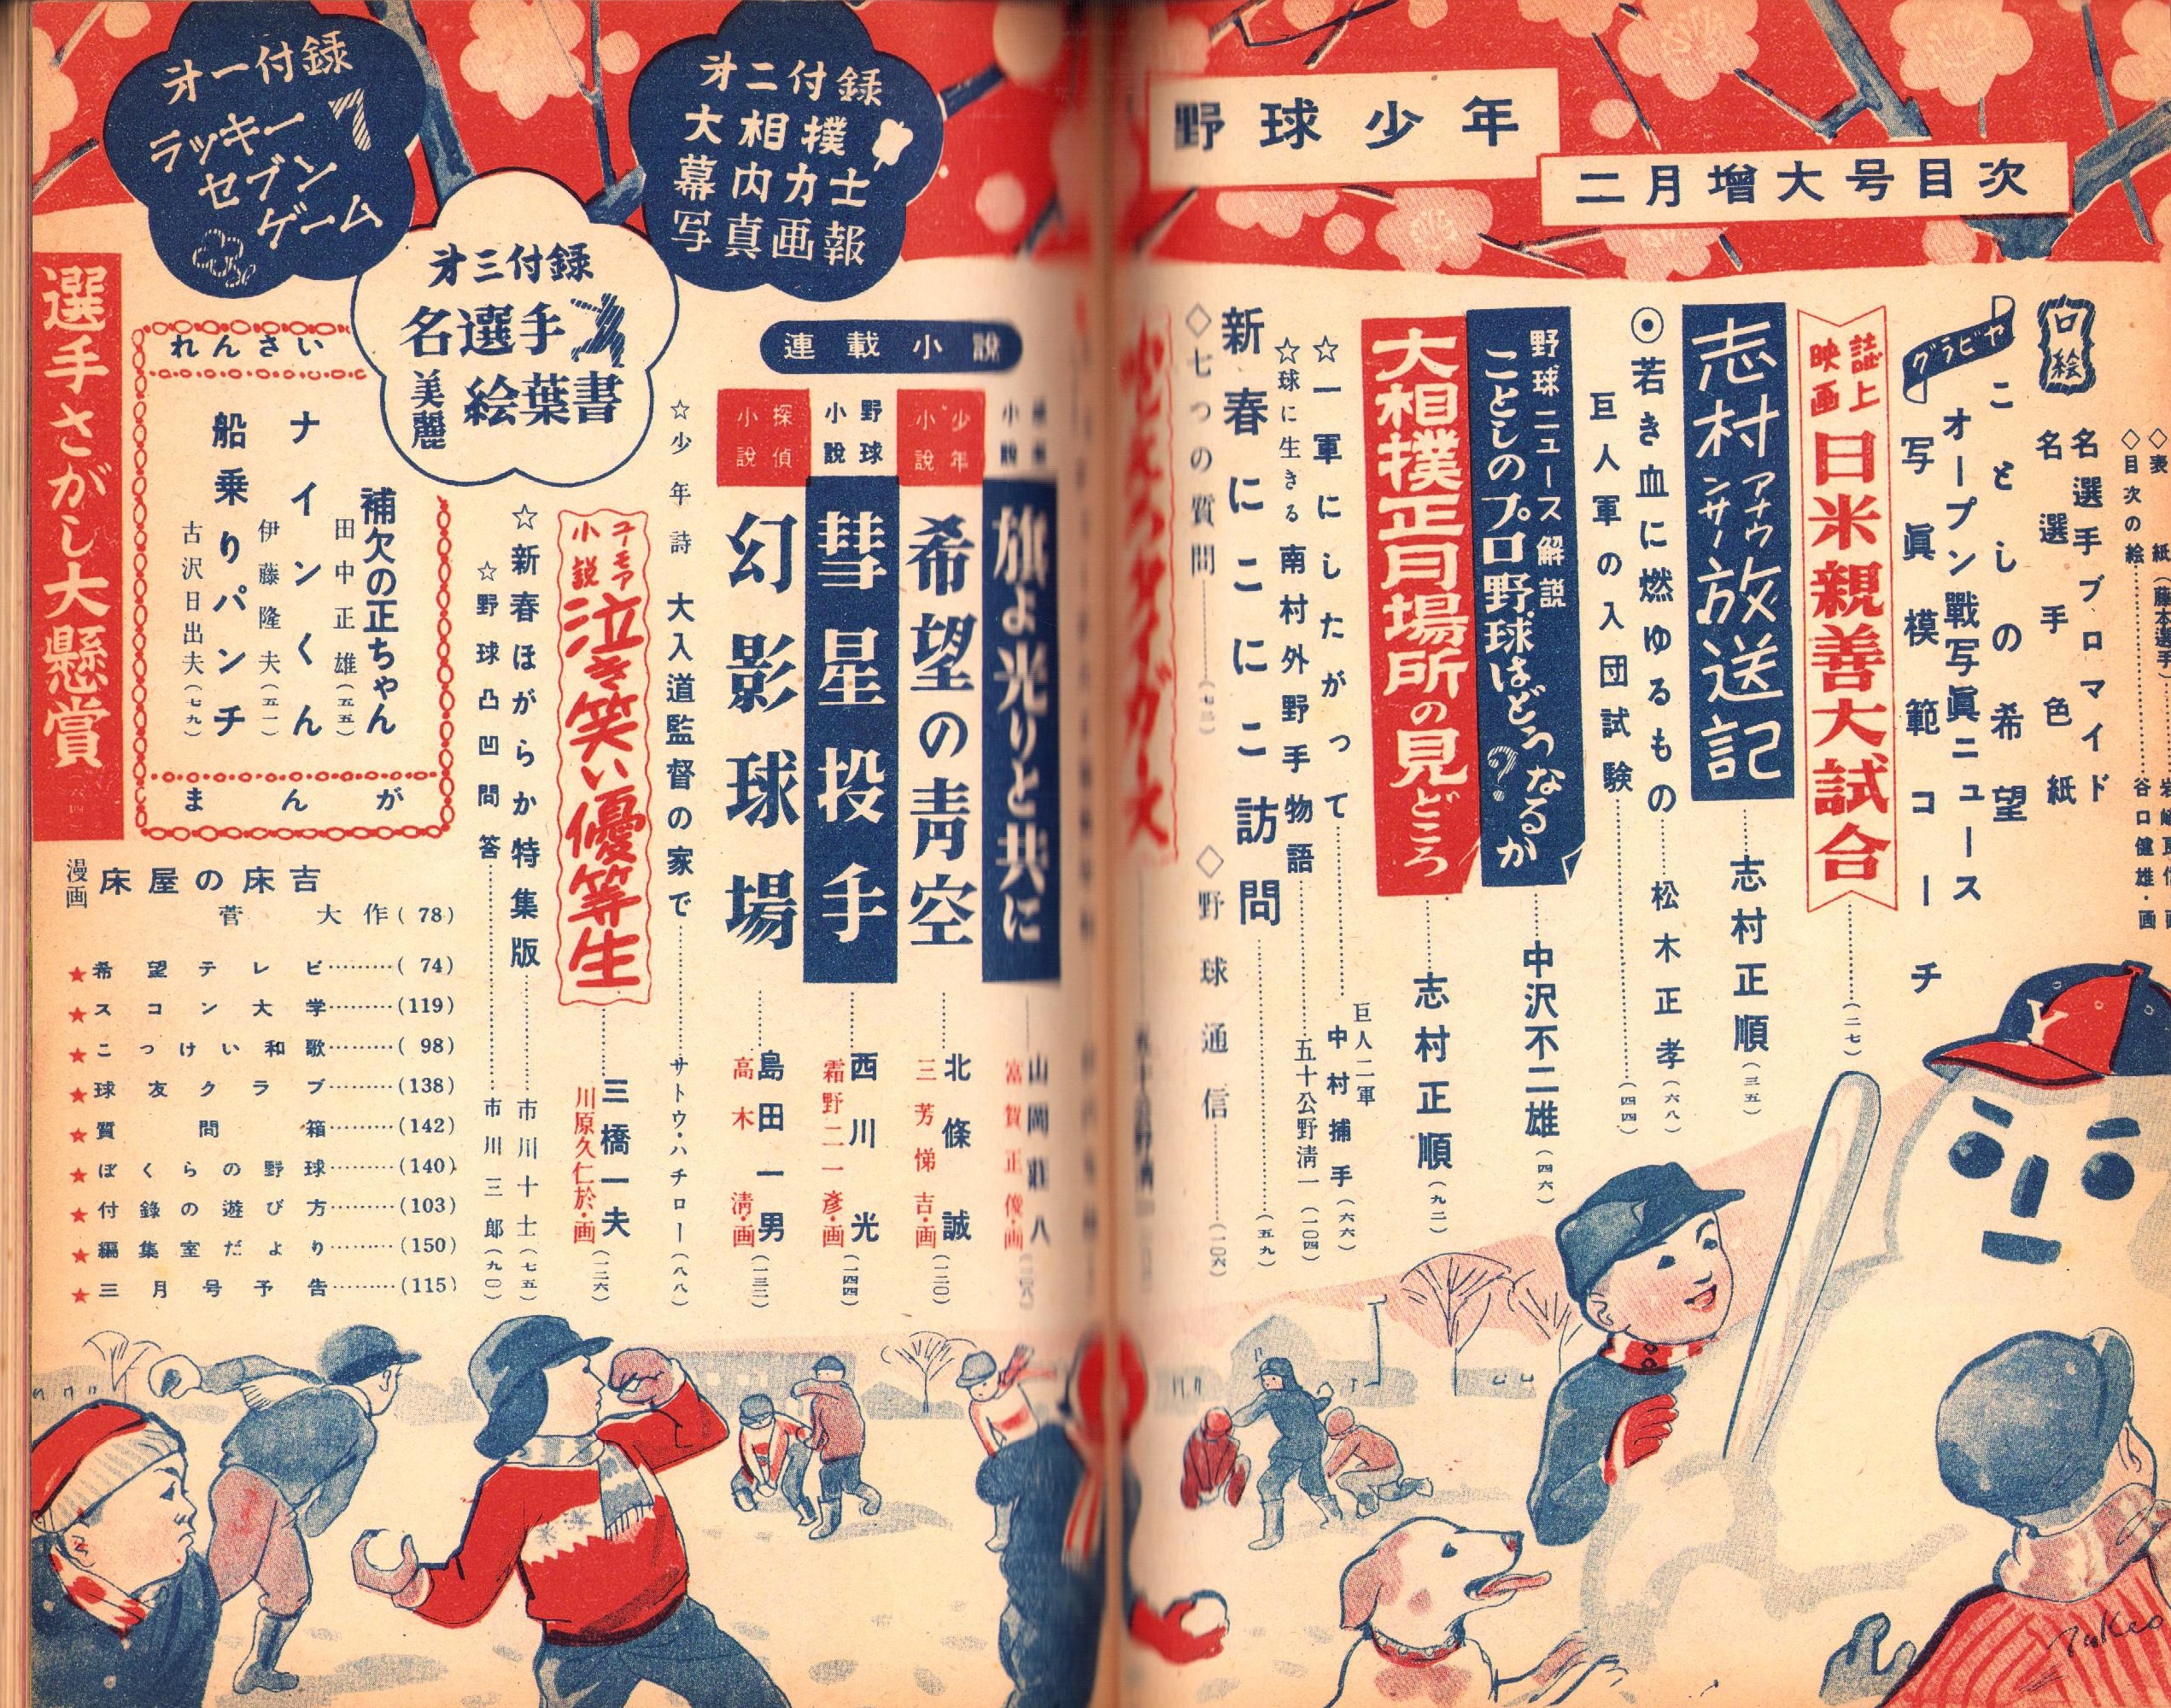 野球少年
二月増大号目次
◇表紙（藤本選手）
◇目次の絵………谷口健雄・画
口絵
名選手ブロマイド
名選手色紙
ことしの希望
グラビヤ
オープン戰写眞ニュース
写眞模範コーチ
誌上映画
日米親善大試合………（二七）
志村アナウンサー放送記………志村正順（三五）
◉若き血に燃ゆるもの………松木正孝（六八）
巨人軍の入団試験………（四四）
野球ニュース解説
ことしのプロ野球はどうなるか?………中沢不二雄（四六）
大相撲正月場所の見どころ………志村正順（九二）
☆一軍にしたがって………巨人二軍 中村捕手（六六）
☆球に生きる 南村外野手物語………五十公野清一（一〇四）
新春にこにこ訪問………（五九）
◇七つの質問………（七三）
◇野球通信………（一〇六）
才一付録
ラッキー7
セブン
ゲーム
才二付録
大相撲
幕内力士
写真画報
才三付録
名選手
美麗
絵葉書
連載小説
旗よ光りと共に………山岡荘八
富賀正俊・画
少年小説
希望の青空………北條誠
三芳悌吉・画（一二〇）
野球小説
彗星投手………西川光
霜野二一彦・画（一四四）
探偵小説
幻影球場………島田一男
高木清・画（一三二）
☆少年詩 大入道監督の家で………サトウ・ハチロー（八八）
ユーモア小説
泣き笑い優等生………三橋一夫
川原久仁於・画（一二六）
☆新春ほがらか特集版………市川十士（七五）
☆野球凸凹問答………市川三郎（九〇）
れんさい
補欠の正ちゃん
田中正雄（五五）
ナインくん
伊藤隆夫（五一）
船乗りパンチ
古沢日出夫（七九）
まんが
選手さがし大懸賞
漫画 床屋の床吉
菅大作（78）
★希望テレビ………（74）
★スコン大学………（119）
★こっけい和歌………（98）
★球友クラブ………（138）
★質問箱………（142）
★ぼくらの野球………（140）
★付錄の遊び方………（103）
★編集室だより………（150）
★三月号予告………（115）
Y
Takeo